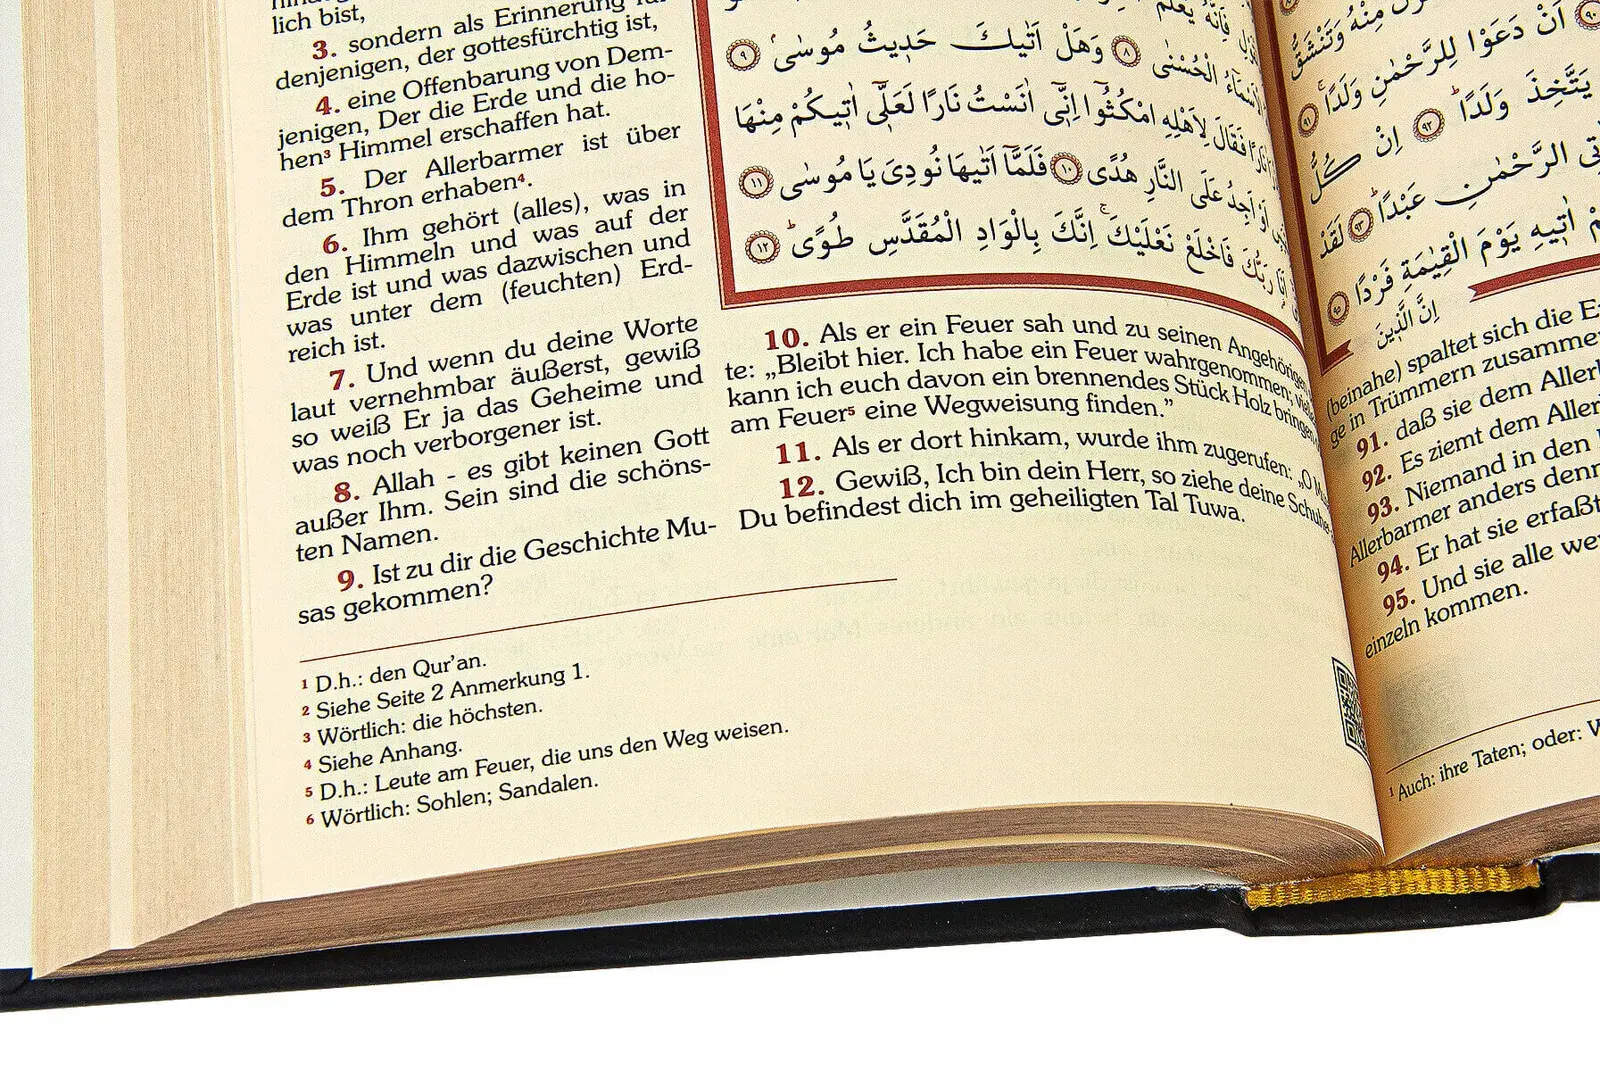 lich bist,
3. sondern als Erinnerung für
denjenigen, der gottesfürchtig ist,
4. eine Offenbarung von Dem-
jenigen, Der die Erde und die ho-
hen³ Himmel erschaffen hat.
5. Der Allerbarmer ist über
dem Thron erhaben⁴.
6. Ihm gehört (alles), was in
den Himmeln und was auf der
Erde ist und was dazwischen und
was unter dem (feuchten) Erd-
reich ist.
7. Und wenn du deine Worte
laut vernehmbar äußerst, gewiß
so weiß Er ja das Geheime und
was noch verborgener ist.
8. Allah - es gibt keinen Gott
außer Ihm. Sein sind die schöns-
ten Namen.
9. Ist zu dir die Geschichte Mu-
sas gekommen?
فَاِنَّهُ يَعْلَمُ
الْاَسْمَٓاءُ الْحُسْنٰى ٨ وَهَلْ اَتٰيكَ حَد۪يثُ مُوسٰىۘ ٩
نَارًا فَقَالَ لِاَهْلِهِ امْكُثُٓوا اِنّ۪ٓي اٰنَسْتُ نَارًا لَعَلّ۪ٓي اٰت۪يكُمْ مِنْهَا
اَوْ اَجِدُ عَلَى النَّارِ هُدًى ١٠ فَلَمَّٓا اَتٰيهَا نُودِيَ يَا مُوسٰى ١١
اَنَا۬ رَبُّكَ فَاخْلَعْ نَعْلَيْكَۚ اِنَّكَ بِالْوَادِ الْمُقَدَّسِ طُوًىۜ ١٢
10. Als er ein Feuer sah und zu seinen Angehörigen
te: „Bleibt hier. Ich habe ein Feuer wahrgenommen;
kann ich euch davon ein brennendes Stück Holz bringen
am Feuer⁵ eine Wegweisung finden.”
11. Als er dort hinkam, wurde ihm zugerufen: „O
12. Gewiß, Ich bin dein Herr, so ziehe deine Schuhe
Du befindest dich im geheiligten Tal Tuwa.
¹ D.h.: den Qur’an.
² Siehe Seite 2 Anmerkung 1.
³ Wörtlich: die höchsten.
⁴ Siehe Anhang.
⁵ D.h.: Leute am Feuer, die uns den Weg weisen.
⁶ Wörtlich: Sohlen; Sandalen.
مِنْهُ وَتَنْشَقُّ
٩٠ اَنْ دَعَوْا لِلرَّحْمٰنِ وَلَدًاۚ ٩١
يَتَّخِذَ وَلَدًاۜ ٩٢ اِنْ كُلُّ
الرَّحْمٰنِ عَبْدًاۜ ٩٣ لَقَدْ
اٰت۪يهِ يَوْمَ الْقِيٰمَةِ فَرْدًا ٩٥
اِنَّ الَّذ۪ينَ
(beinahe) spaltet sich die
ge in Trümmern
91. daß sie dem
92. Es ziemt dem
93. Niemand in den
Allerbarmer anders
94. Er hat sie erfaßt
95. Und sie alle
einzeln kommen.
¹ Auch: ihre Taten; oder: